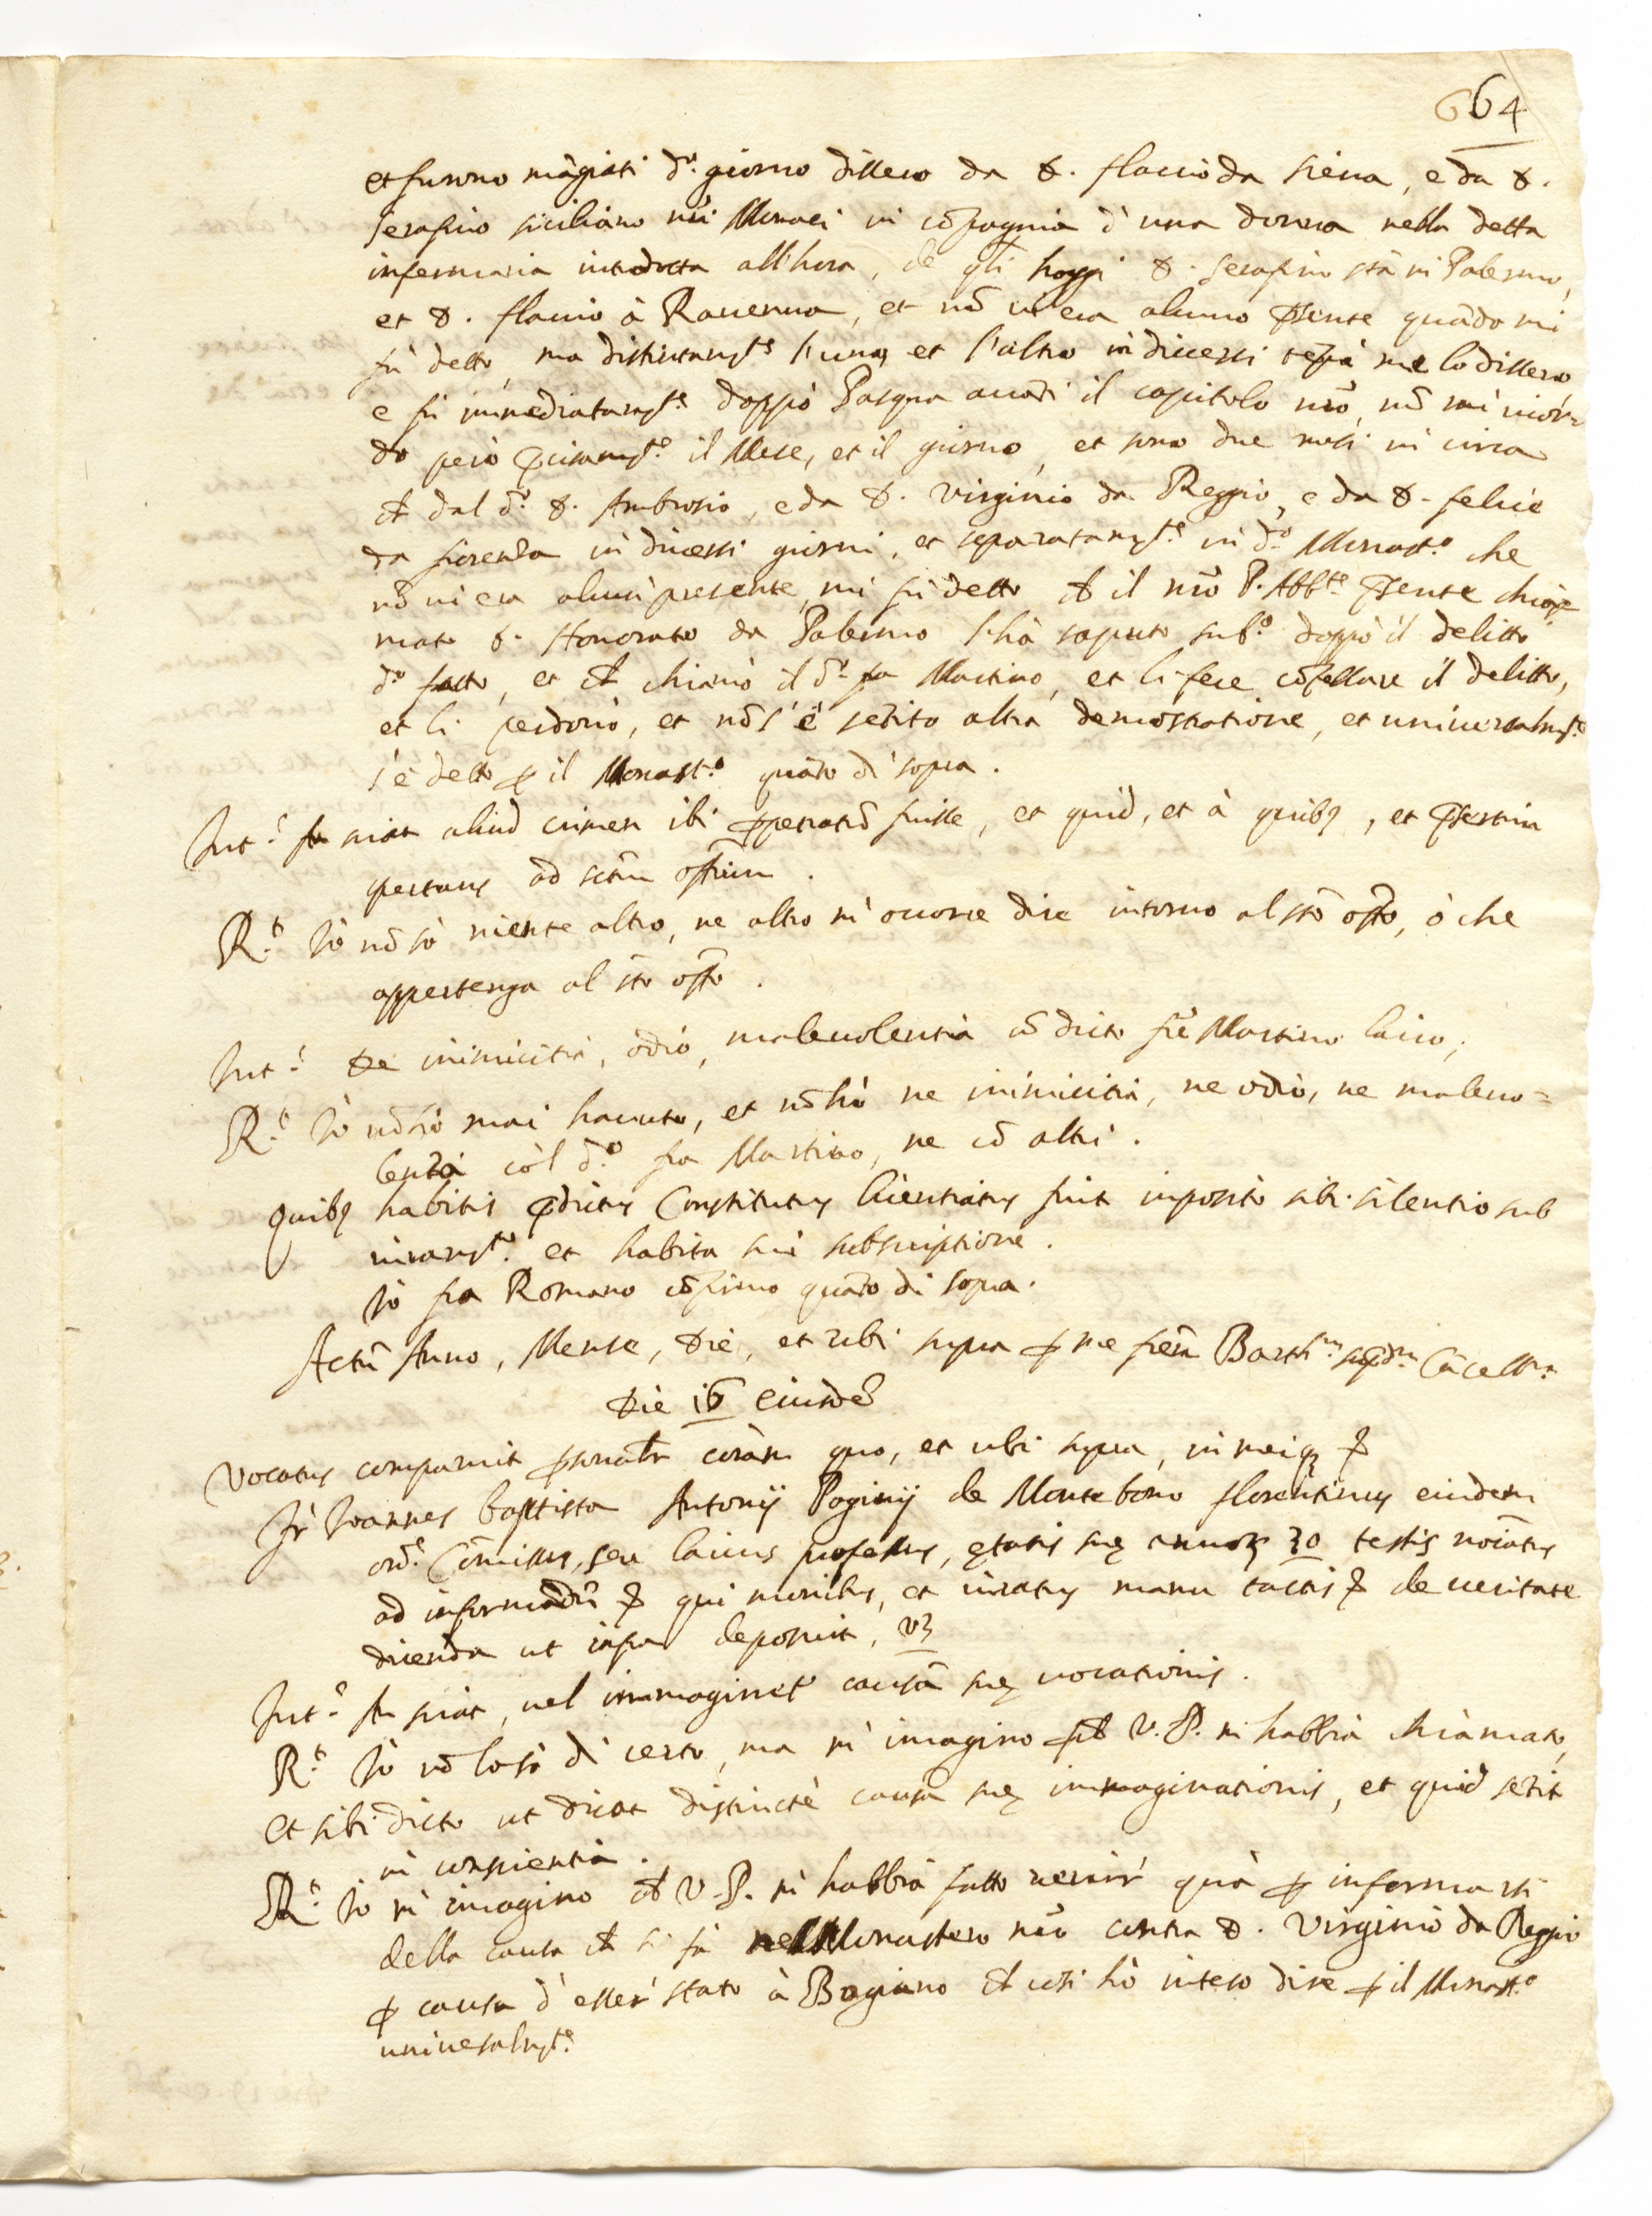 664
et furono mãgiati d.º giorno dissero da D. Flavio da Siena, e da D.
Serafino siciliano nr̃i Monaci in cõpagnia d'una donna nella detta
infermaria introdotta all'hora, de q̃li hoggi D. Serafino stà in Palermo,
et D. Flavio à Ravenna, et nõ vi era alcuno p̃sente quãdo mi
fù detto, ma distintam.te l'uno, et l'altro in diversi tẽpi me lo dissero
e fù immediatam.te doppò Pasqua avãti il capitolo nr̃o, nõ mi ricor=
do però p̃cisam.te il Mese, et il giorno, et sono due mesi in circa
Et dal d.º D. Ambrosio, e da D. Virginio da Reggio, e da D. Felice
da fiorenza in diversi giorni, et separatam.te in d.º Monast.º che
nõ vi era alcuni presente, mi fù detto ch il nr̃o P. Abb.te p̃sente chia=
mato D. Honorato da Palermo l'hà saputo sub.º doppò il delitto
d.º fatto, et ch chiamò il d.º fra Martino, et li fece cõfessare il delitto,
et li perdonò, et nõ s'è sẽtito altra demostratione, et universalm.te
s'è detto p il Monast.º quãto di sopra.
Int.s An sciat aliud crimen ibi ppetratũ fuisse, et quid, et à quibq, et p̃sertim
spectans ad sctũ offiũm.
R.t Iò nõ sò niente altro, ne altro m'occorre dire intorno al sto offo, ò che
appertenga al sto offo.
Int.s De inimicitia, odiò, malevolentia cũ dicto fr̃e Martino laico,
R.t Iò nõ hò mai havuto, et nõ hò ne inimicitia, ne odiò, ne malevo=
lenza còl d.º fra Martino, ne cõ altri.
Quibq habitis p̃dictus Constitutus licentiatus fuit imposito sibi silentio sub
iuram.to et habita sui subscriptione.
Iò fra Romano cõfirmo quãto di sopra.
Actũ Anno, Mense, Die, et ubi supra p me frẽm Barth.m sup̃d.m Cãcell.m
Die 16 eiusdẽ
Vocatus comparuit psonalr coram quo, et ubi supra, in meiq &
Fr̃ Ioannes baptista Antonij Paginij de Montebono florentinus eiusdem
ord.s Cõmissus, seu laicus professus, ętatis suę annoꝝ 30 testis noĩatus
ad informãdũ & qui monitus, et iuratus manu tactis & de veritate
dicenda ut infra deposuit, vz
Int.s An sciat, vel immaginet' causã suę vocationis.
R.t Iò nõ lo sò di certo, ma m'imagino pch V. P. m'habbia chiamato,
Et sibi dicto ut dicat distinctè causã suę immaginationis, et quid sẽtit
in conscientia.
R.t Iò m'imagino ch V. P. m'habbia fatto venir' quà p informarsi
della causa ch si fà nel Monastero nr̃o contra D. Virginio da Reggio
p causa d'esser' stato à Bagiano ch cosi hò inteso dire p il Monast.º
universalm.te